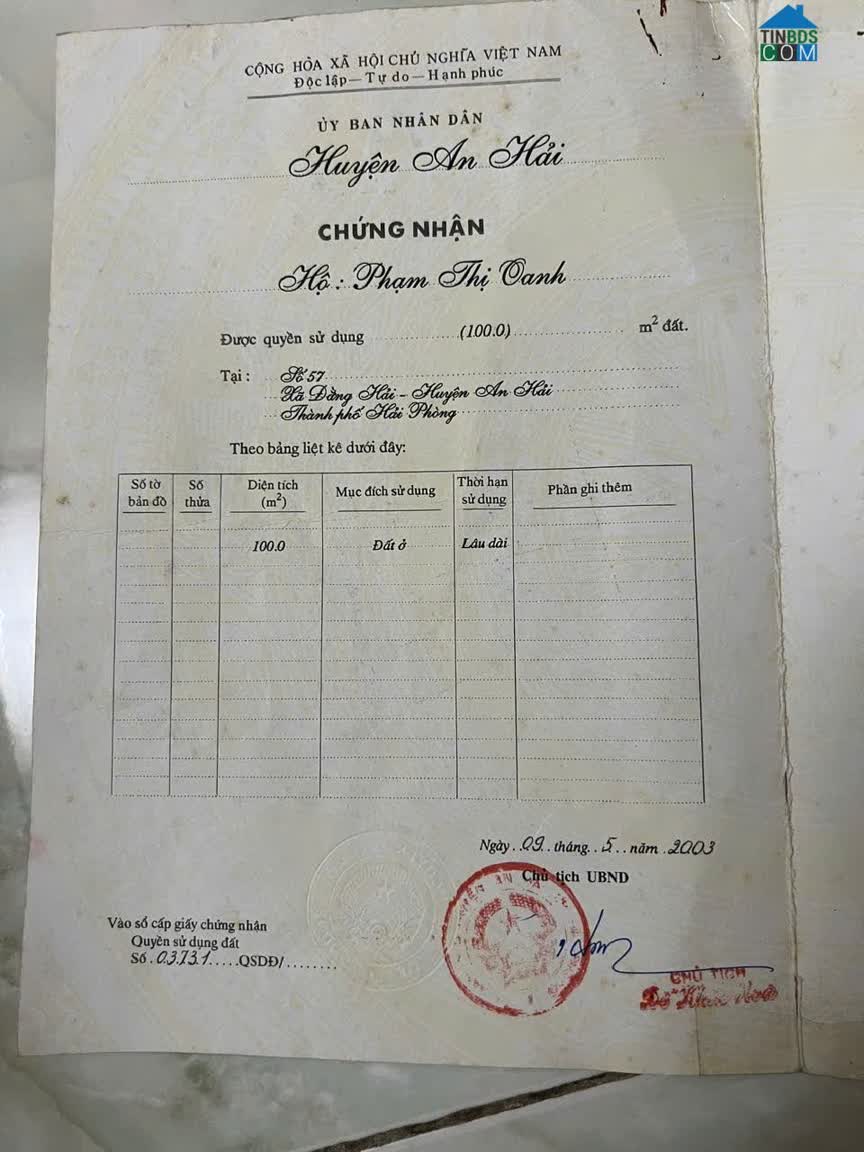 TINBDS
COM
CỘNG HÒA XÃ HỘI CHỦ NGHĨA VIỆT NAM
Độc lập—Tự do—Hạnh phúc
ỦY BAN NHÂN DÂN
Huyện An Hải
CHỨNG NHẬN
Hộ: Phạm Thị Oanh
Được quyền sử dụng (100.0) m² đất.
Tại: Số 57
Xã Đằng Hải - Huyện An Hải
Thành phố Hải Phòng
Theo bảng liệt kê dưới đây:
Số tờ bản đồ Số thửa Diện tích (m²) Mục đích sử dụng Thời hạn sử dụng Phần ghi thêm
100.0 Đất ở Lâu dài
Ngày..09..tháng..5..năm.2003
Chủ tịch UBND
Vào sổ cấp giấy chứng nhận
Quyền sử dụng đất
Số.03731.....QSDĐ/........
CHỦ TỊCH